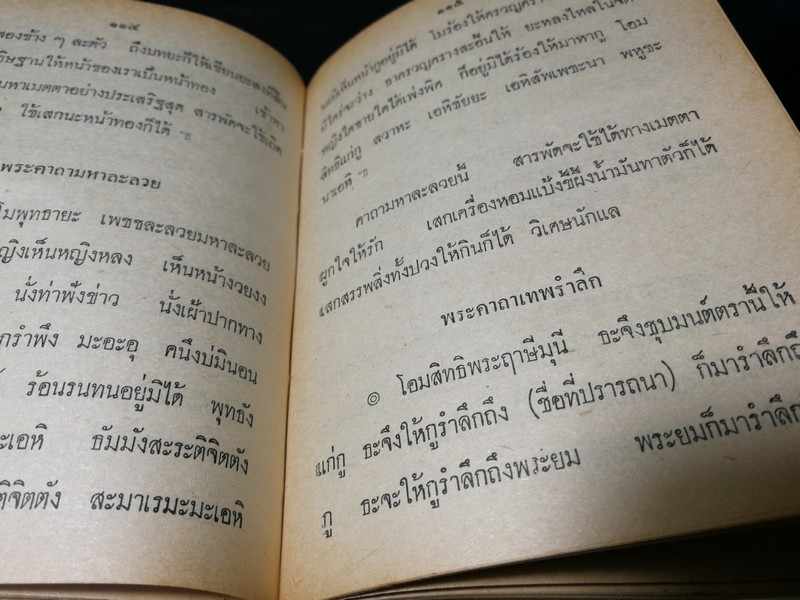 ๑๑๔
ทองข้าง ๆ ละตัว ถึงบทยะก็ให้เขียนยะลงที่ลิ้น
ธิษฐานให้หน้าของเราเป็นหน้าทอง เช้าตา
นหาเมตตาอย่างประเสริฐสุด สารพัดจะใช้เถิด
ใช้เสกนะหน้าทองก็ได้ ฯ
พระคาถามหาละลวย
โมพุทธายะ เพชชละลวยมหาละลวย
ญิงเห็นหญิงหลง เห็นหน้างวยงง
นั่งท่าฟังข่าว นั่งเฝ้าปากทาง
กรำพึง มะอะอุ คนึงบ่มินอน
ร้อนรนทนอยู่มิได้ พุทธัง
ะเอหิ ธัมมังสะระติจิตตัง
ติจิตตัง สะมาเรมะมะเอหิ
๑๑๕
หญิงใดชายใดได้เพ่งพิศ ก็อยู่มิได้ร้องให้มาหากู โอม
สิทธิแก่กู สวาหะ เอหิชัยยะ เอหิสัพเพชะนา พหูชะ
นาเอหิ ฯ
คาถามหาละลวยนี้ สารพัดจะใช้ได้ทางเมตตา
ผูกใจให้รัก เสกเครื่องหอมแป้งขี้ผึ้งน้ำมันทาตัวก็ได้
เสกสรรพสิ่งทั้งปวงให้กินก็ได้ วิเศษนักแล
พระคาถาเทพรำลึก
๏ โอมสิทธิพระฤาษีมุนี ธะจึงชุบมนต์ตรานี้ให้
แก่กู ธะจึงให้กูรำลึกถึง (ชื่อที่ปรารถนา) ก็มารำลึกถึ
กู ธะจะให้กูรำลึกถึงพระยม พระยมก็มารำลึก